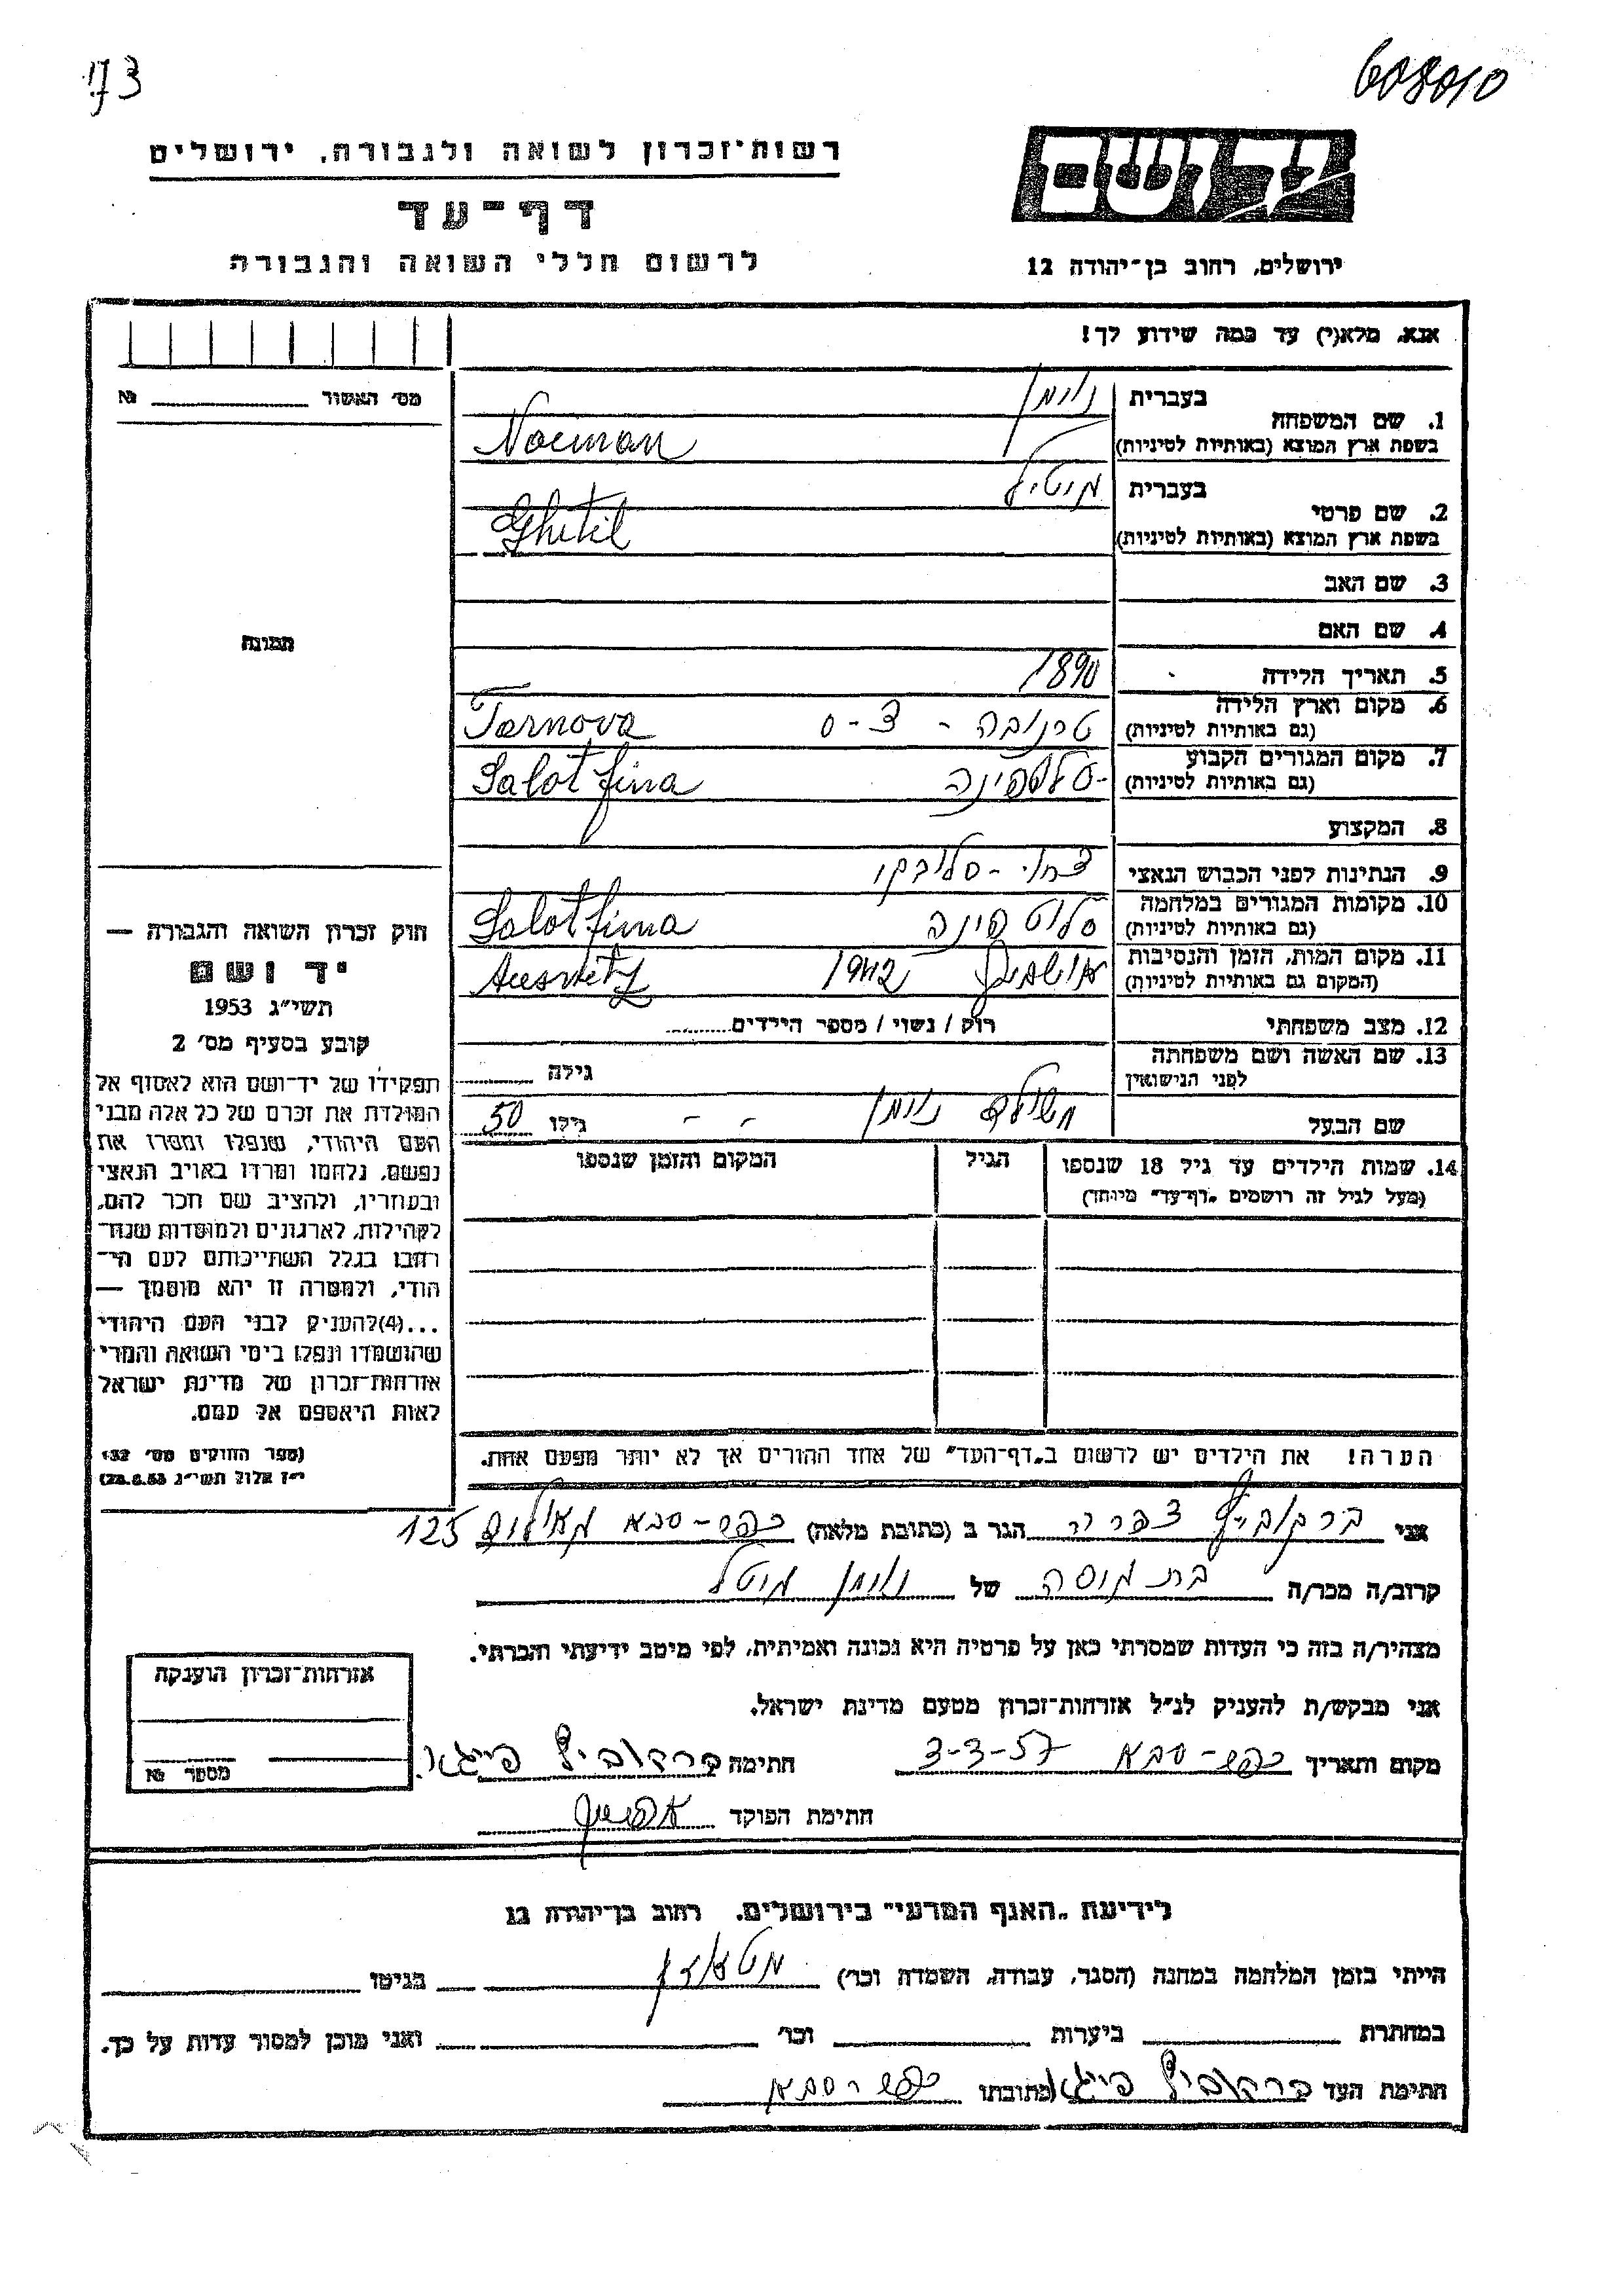 173
608010
רשות־זכרון לשואה ולגבורה, ירושלים
דף־עד
לרשום חללי השואה והגבורה
יד ושם
ירושלים, רחוב בן־יהודה 12
אנא, מלא(י) עד כמה שידוע לך!
מס׳ האשור № 
1. שם המשפחה
בעברית נוימן
בשפת ארץ המוצא (באותיות לטיניות) Noeiman
2. שם פרטי
בעברית
בשפת ארץ המוצא (באותיות לטיניות) Ghitil
3. שם האב
4. שם האם
5. תאריך הלידה 1890
6. מקום וארץ הלידה
(גם באותיות לטיניות) טרנובה - צ-ס Tarnova
7. מקום המגורים הקבוע
(גם באותיות לטיניות) Salot fina
8. המקצוע
9. הנתינות לפני הכבוש הנאצי
10. מקומות המגורים במלחמה
(גם באותיות לטיניות) סלוט פינה Salot fina
11. מקום המות, הזמן והנסיבות
(המקום גם באותיות לטיניות) אושביץ 1942 Ausvietz
12. מצב משפחתי רוק / נשוי / מספר הילדים
13. שם האשה ושם משפחתה
לפני הנישואין גילה
שם הבעל נוימן - - גילו 50
14. שמות הילדים עד גיל 18 שנספו
(מעל לגיל זה רושמים „דף־עד״ מיוחד)
הגיל
המקום והזמן שנספו
הערה! את הילדים יש לרשום ב„דף־העד״ של אחד ההורים אך לא יותר מפעם אחת.
תמונה
חוק זכרון השואה והגבורה —
יד ושם
תשי״ג 1953
קובע בסעיף מס׳ 2
תפקידו של יד־ושם הוא לאסוף אל
המולדת את זכרם של כל אלה מבני
העם היהודי, שנפלו ומסרו את
נפשם, נלחמו ומרדו באויב הנאצי
ובעוזריו, ולהציב שם וזכר להם,
לקהילות, לארגונים ולמוסדות שנח־
רבו בגלל השתייכותם לעם הי־
הודי, ולמטרה זו יהא מוסמך —
...(4)להעניק לבני העם היהודי
שהושמדו ונפלו בימי השואה והמרי
אזרחות־זכרון של מדינת ישראל
לאות היאספם אל עמם.
(ספר החוקים מס׳ 132
י״ז אלול תשי״ג 28.8.53)
אני ברקוביץ הגר ב (כתובת מלאה) כפר-סבא 125
קרוב/ה מכר/ה של נוימן
מצהיר/ה בזה כי העדות שמסרתי כאן על פרטיה היא נכונה ואמיתית, לפי מיטב ידיעתי והכרתי.
אני מבקש/ת להעניק לנ״ל אזרחות־זכרון מטעם מדינת ישראל.
מקום ותאריך כפר-סבא 3-3-57 חתימה ברקוביץ פייגא
חתימת הפוקד
אזרחות־זכרון הוענקה
מספר №
לידיעת „האגף המדעי״ בירושלים. רחוב בן־יהודה 12
הייתי בזמן המלחמה במחנה (הסגר, עבודה, השמדה וכו׳) בגיטו
במחתרת ביערות וכו׳ ואני מוכן למסור עדות על כך.
חתימת העד ברקוביץ פייגא כתובתו כפר-סבא